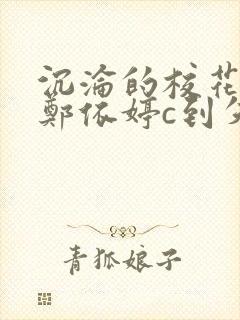 沉淪的校花
鄭依婷c到
青狐娘子